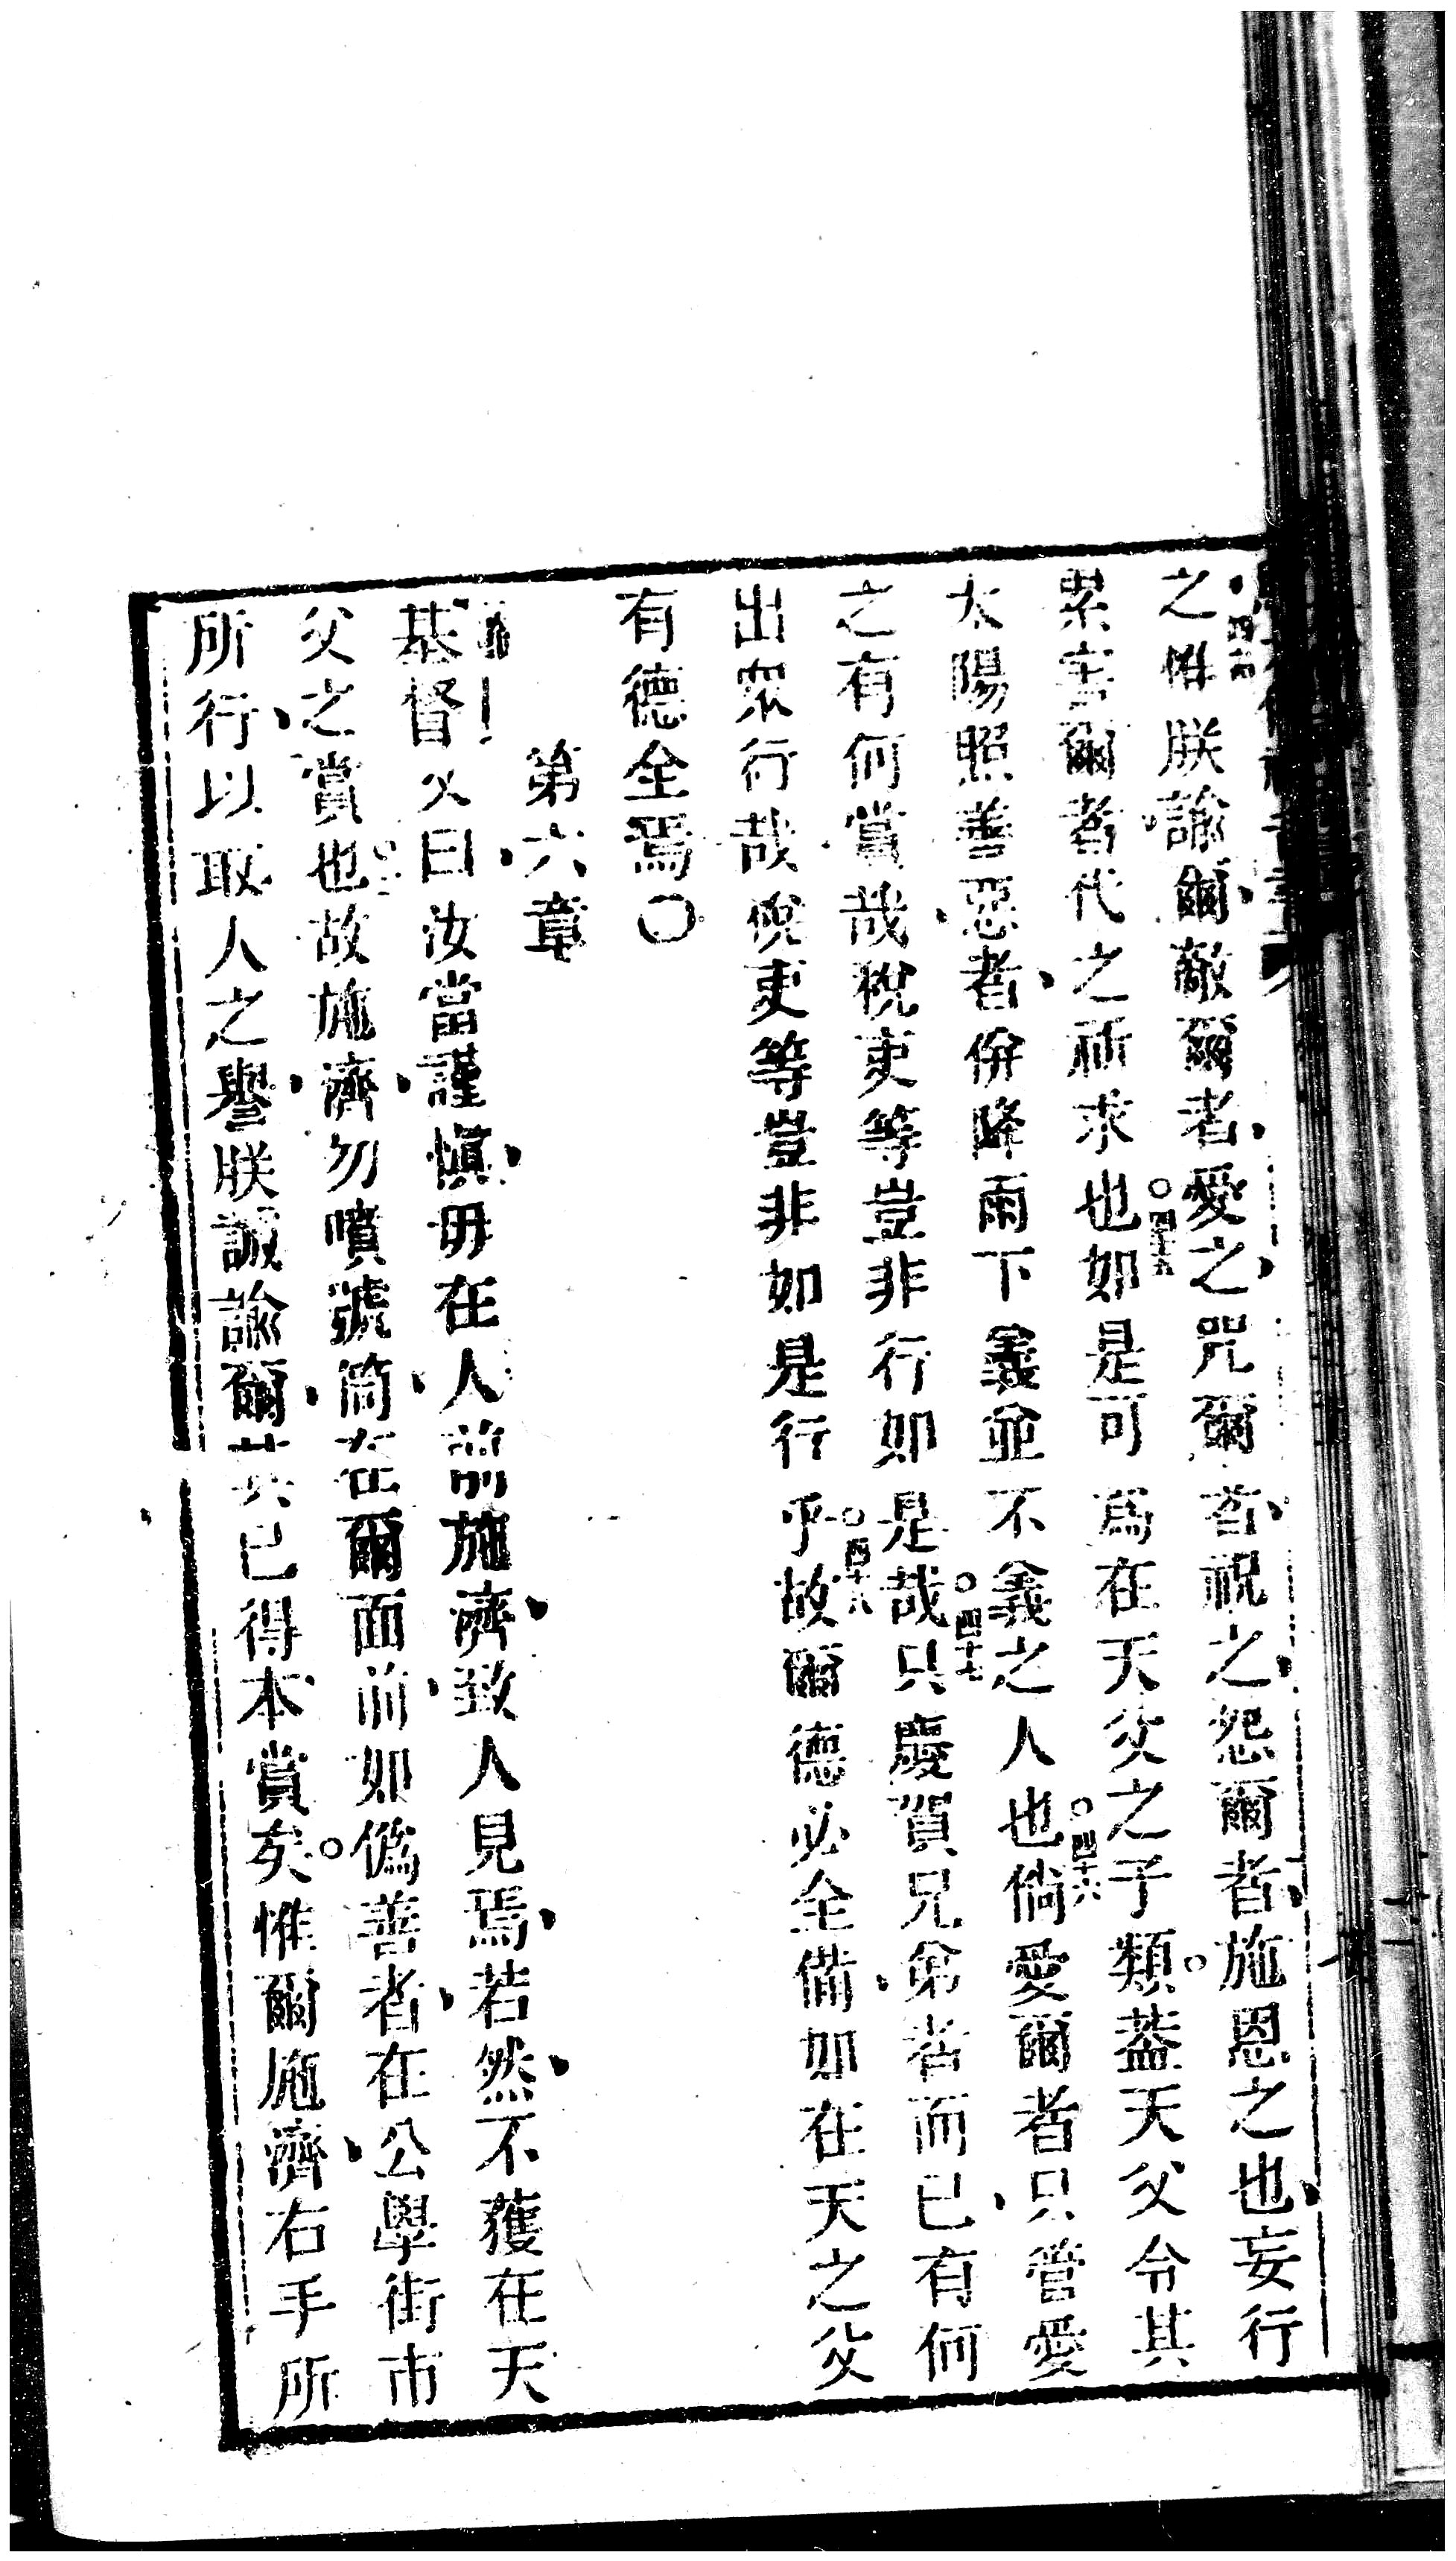 之惟朕諭爾敵爾者愛之咒爾者祝之怨爾者施恩之也妄行
累害爾者代之祈求也○四十五如是可爲在天父之子類蓋天父令其
太陽照善惡者併降雨下義並不義之人也○四十六倘愛爾者只管愛
之有何賞哉稅吏等豈非行如是哉○四十七只慶賀兄弟者而已有何
出衆行哉稅吏等豈非如是行乎○四十八故爾德必全備如在天之父
有德全焉○
第六章
基督又曰汝當謹慎毋在人前施濟致人見焉若然不獲在天
父之賞也故施濟勿噴號筒在爾面前如僞善者在公學街市
所行以取人之譽朕誠諭爾其已得本賞矣惟爾施濟右手所